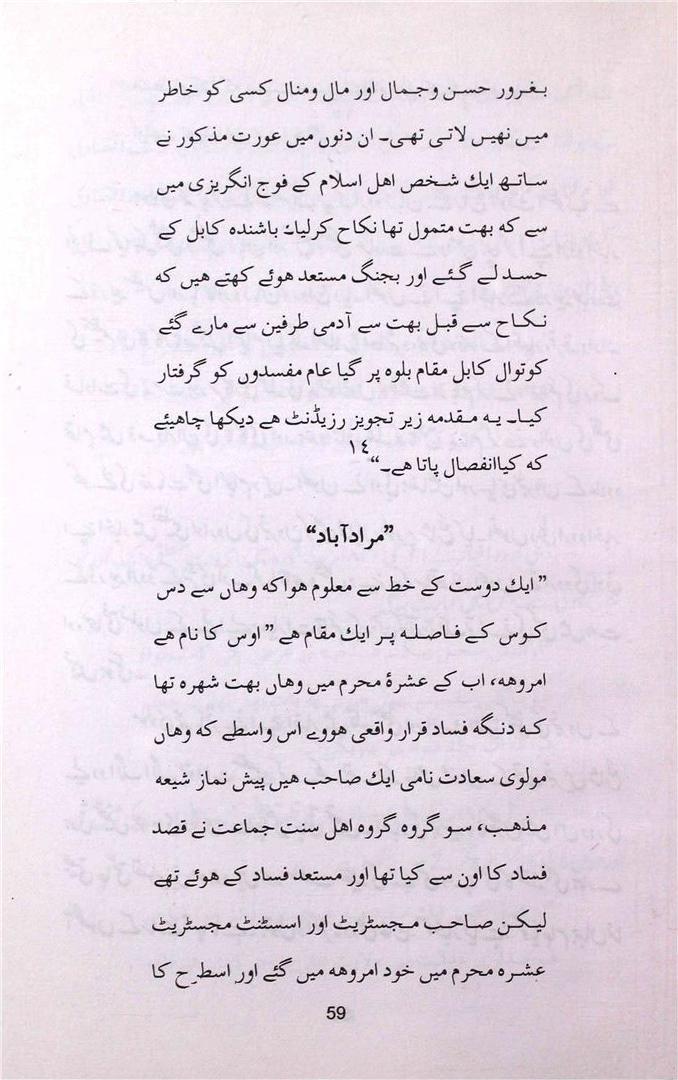 بغرور حسن وجمال اور مال ومنال کسی کو خاطر
میں نهیں لاتی تهی۔ ان دنوں میں عورت مذکور نے
ساتھ ایك شخص اهل اسلام کے فوج انگریزی میں
سے که بهت متمول تها نکاح کرلیا۔ باشنده کابل کے
حسد لے گئے اور بجنگ مستعد هوئے کهتے هیں که
نکاح سے قبل بهت سے آدمی طرفین سے مارے گئے
کوتوال کابل مقام بلوه پر گیا عام مفسدوں کو گرفتار
کیا۔ یه مقدمه زیر تجویز رزیڈنٹ هے دیکها چاهیئے
که کیاانفصال پاتا هے۔“١٤
”مرادآباد“
”ایك دوست کے خط سے معلوم هواکه وهاں سے دس
کوس کے فاصله پر ایك مقام هے ”اوس کا نام هے
امروهه، اب کے عشرۂ محرم میں وهاں بهت شهره تها
که دنگه فساد قرار واقعی هووے اس واسطے که وهاں
مولوی سعادت نامی ایك صاحب هیں پیش نماز شیعه
مذهب، سو گروه گروه اهل سنت جماعت نے قصد
فساد کا اون سے کیا تها اور مستعد فساد کے هوئے تهے
لیکن صاحب مجسٹریٹ اور اسسٹنٹ مجسٹریٹ
عشره محرم میں خود امروهه میں گئے اور اسطرح کا
59